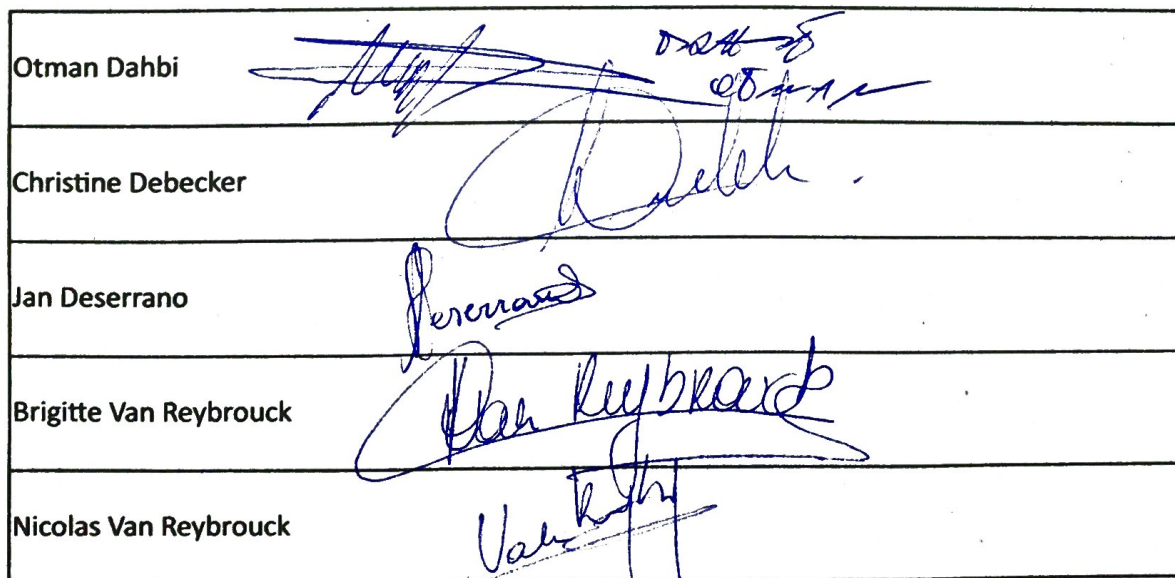 Otman Dahbi
Christine Debecker
Jan Deserrano
Deserrano
Brigitte Van Reybrouck
Van Reybrouck
Nicolas Van Reybrouck